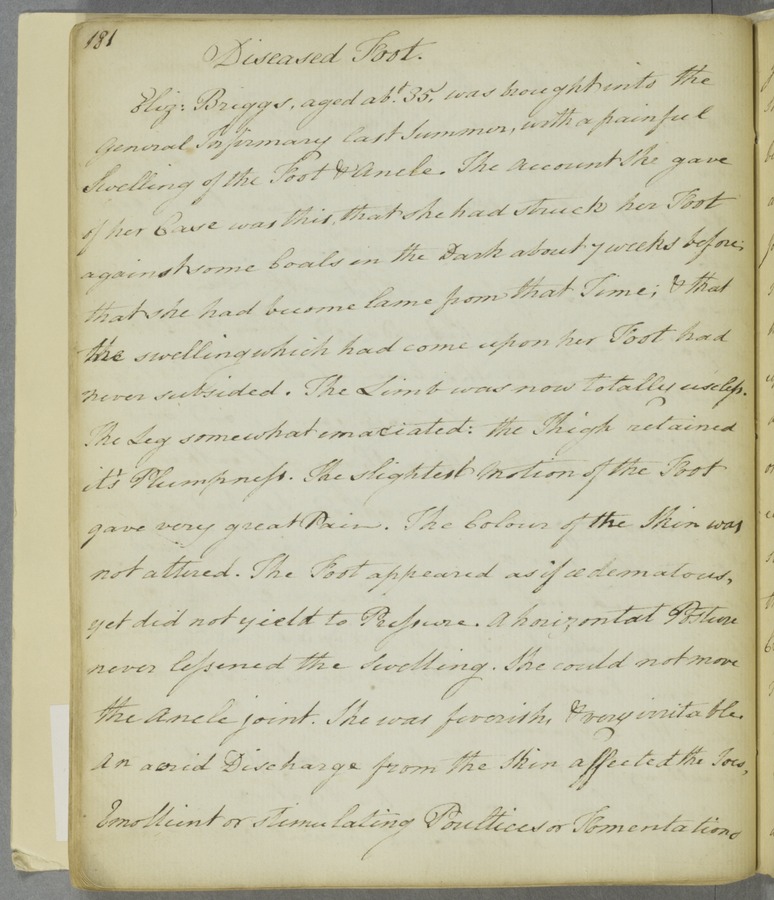 181
Diseased Foot.
Eliz: Briggs, aged abt. 35, was brought into the
General Infirmary last Summer, with a painful
Swelling of the Foot & Ancle. The Account She gave
of her Case was this, that she had struck her Foot
against some Coals in the Dark about 7 weeks before;
that she had become lame from that Time; & that
the swelling which had come upon her Foot had
never subsided. The Limb was now totally useless.
The Leg somewhat emaciated: the Thigh retained
it's Plumpness. The slightest Motion of the Foot
gave very great Pain. The Colour of the Skin was
not altered. The Foot appeared as if œdematous,
yet did not yield to Pressure. A horizontal Posture
never lessened the Swelling. She could not move
the Ancle joint. She was feverish, & very irritable.
An acrid Discharge from the Skin affected the Toes,
Emollient or stimulating Poultices or Fomentations